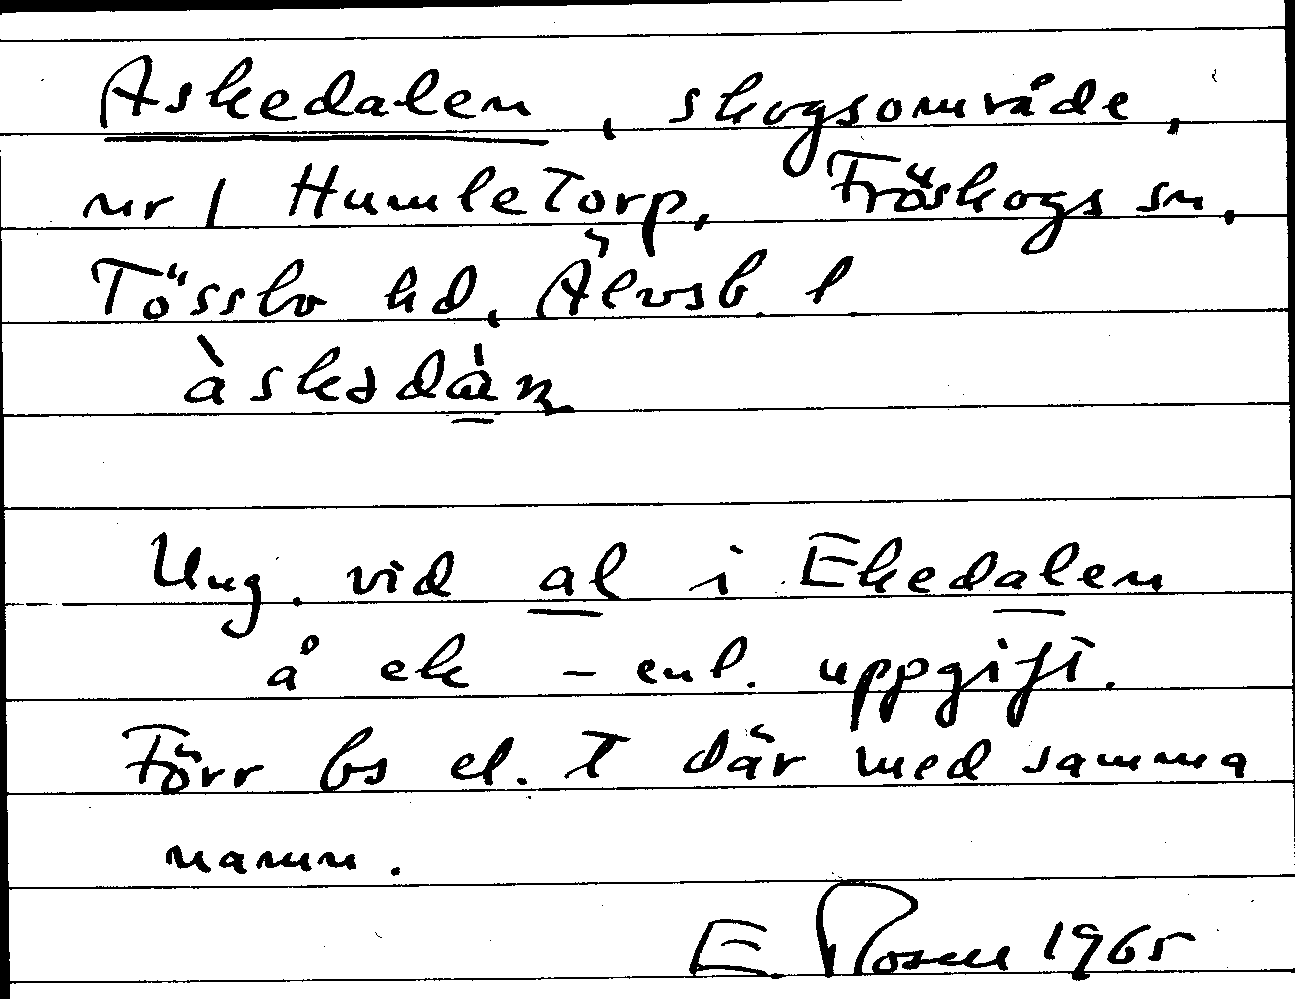 Askedalen, skogsområde,
nr 1 Humletorp, Fröskogs sn,
Tössbo hd, Älvsb. l
àskədàn
Ung. vid al i Ekedalen
å ek – enl. uppgift.
Förr bs el. T där med samma
namn.
E. Rosell 1965